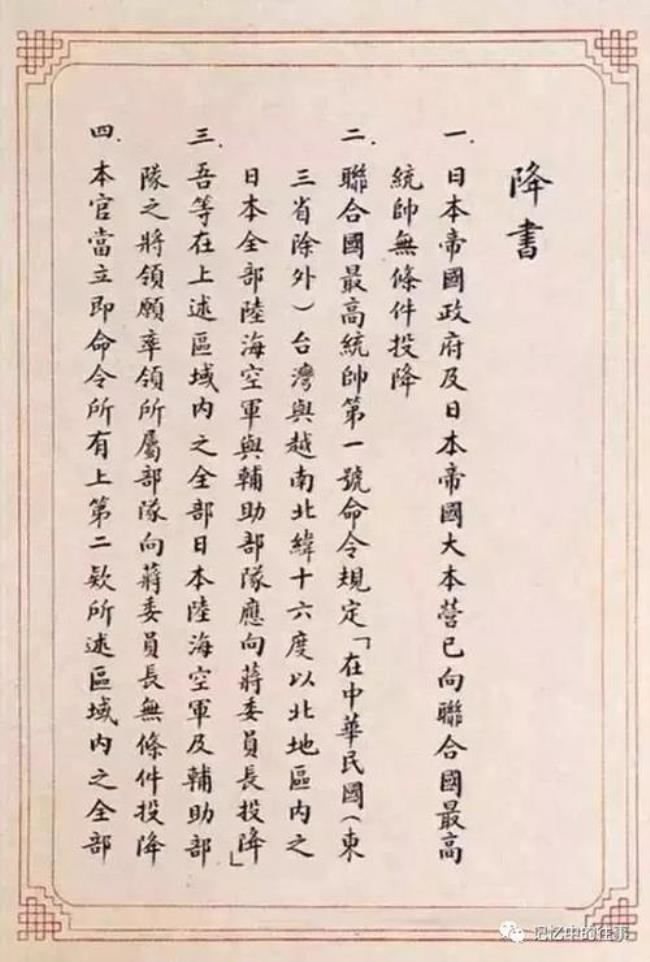 降書
一.日本帝國政府及日本帝國大本營已向聯合國最高
統帥無條件投降
二.聯合國最高統帥第一號命令規定「在中華民國(東
三省除外)台灣與越南北緯十六度以北地區內之
日本全部陸海空軍與輔助部隊應向蔣委員長投降」
三.吾等在上述區域內之全部日本陸海空軍及輔助部
隊之將領願率領所屬部隊向蔣委員長無條件投降
四.本官當立即命令所有上第二款所述區域內之全部
记忆中的往事